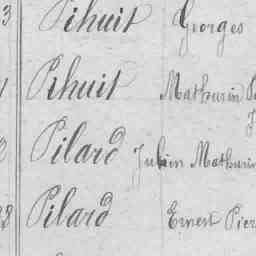 3 Pihuit Georges
Pihuit Mathurin
Pilard Julien Mathurin
Pilard Ernest Pier